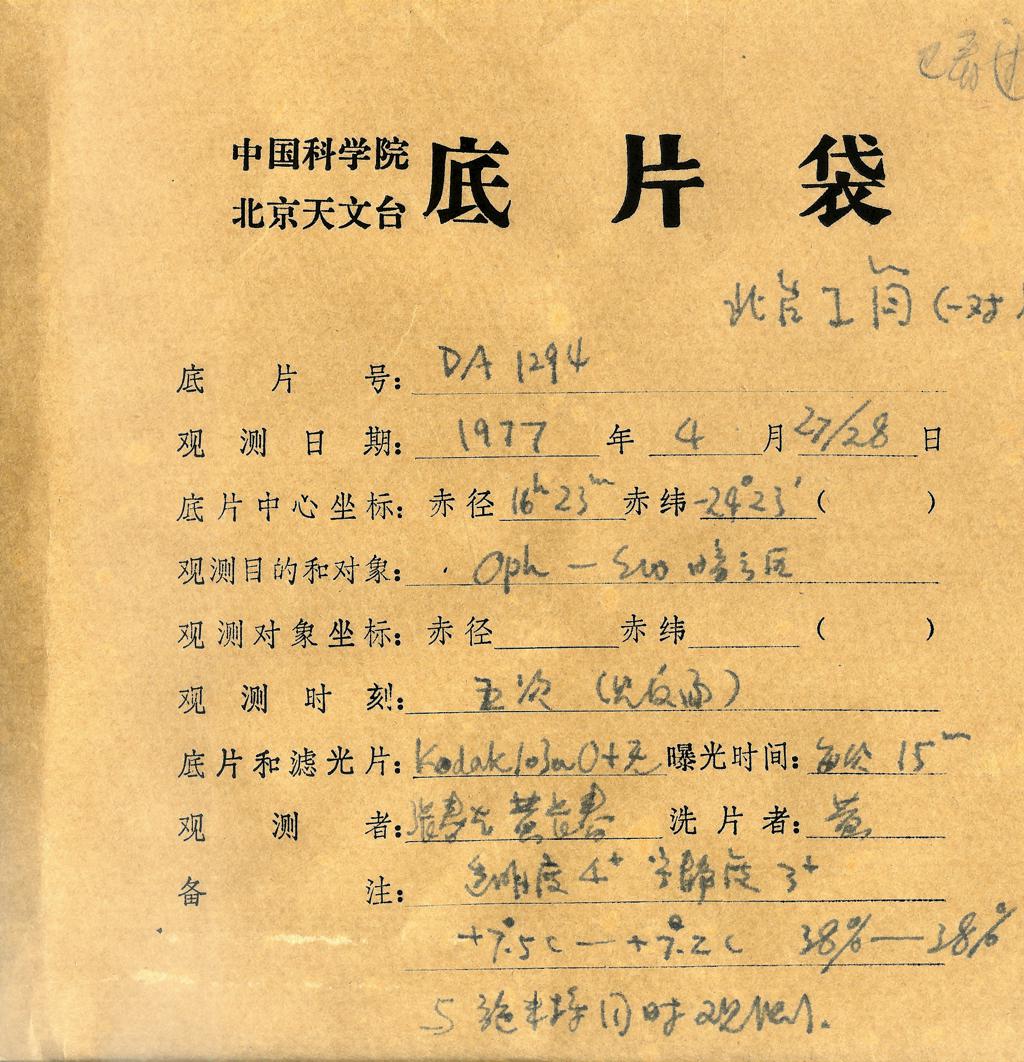 已看过
中国科学院
北京天文台
底片袋
北岩工间(一对
底片号: DA 1294
观测日期: 1977年4月27/28日
底片中心坐标: 赤径16h23m赤纬-24°23′( )
观测目的和对象: Oph — Sco 暗云区
观测对象坐标: 赤径 赤纬 ( )
观测时刻: 五次 (见反面)
底片和滤光片: Kodak 103a O+无 曝光时间: 每次 15m
观测者: 黄长春 洗片者: 黄
备注: 透明度 4+ 宁静度 3+
+7.°5C — +7.°2C 38% — 38%
同时观测.